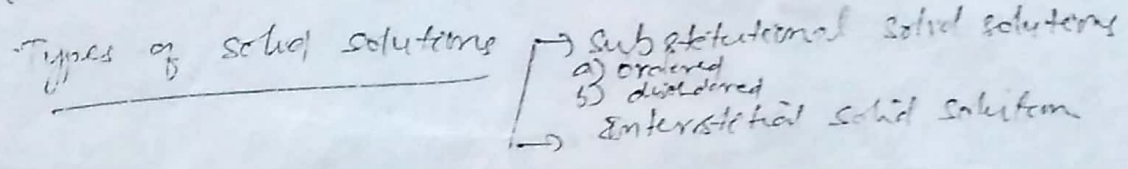 Types of solid solutions → Substitutional solid solutions
a) ordered
b) disordered
→ Interstitial solid solution